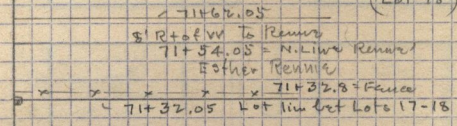 71+62.05
8' Rt of W To Rennie
71+54.05 = N. Line Rennie
Esther Rennie
71+32.8 = Fence
71+32.05 Lot line bet Lots 17-18